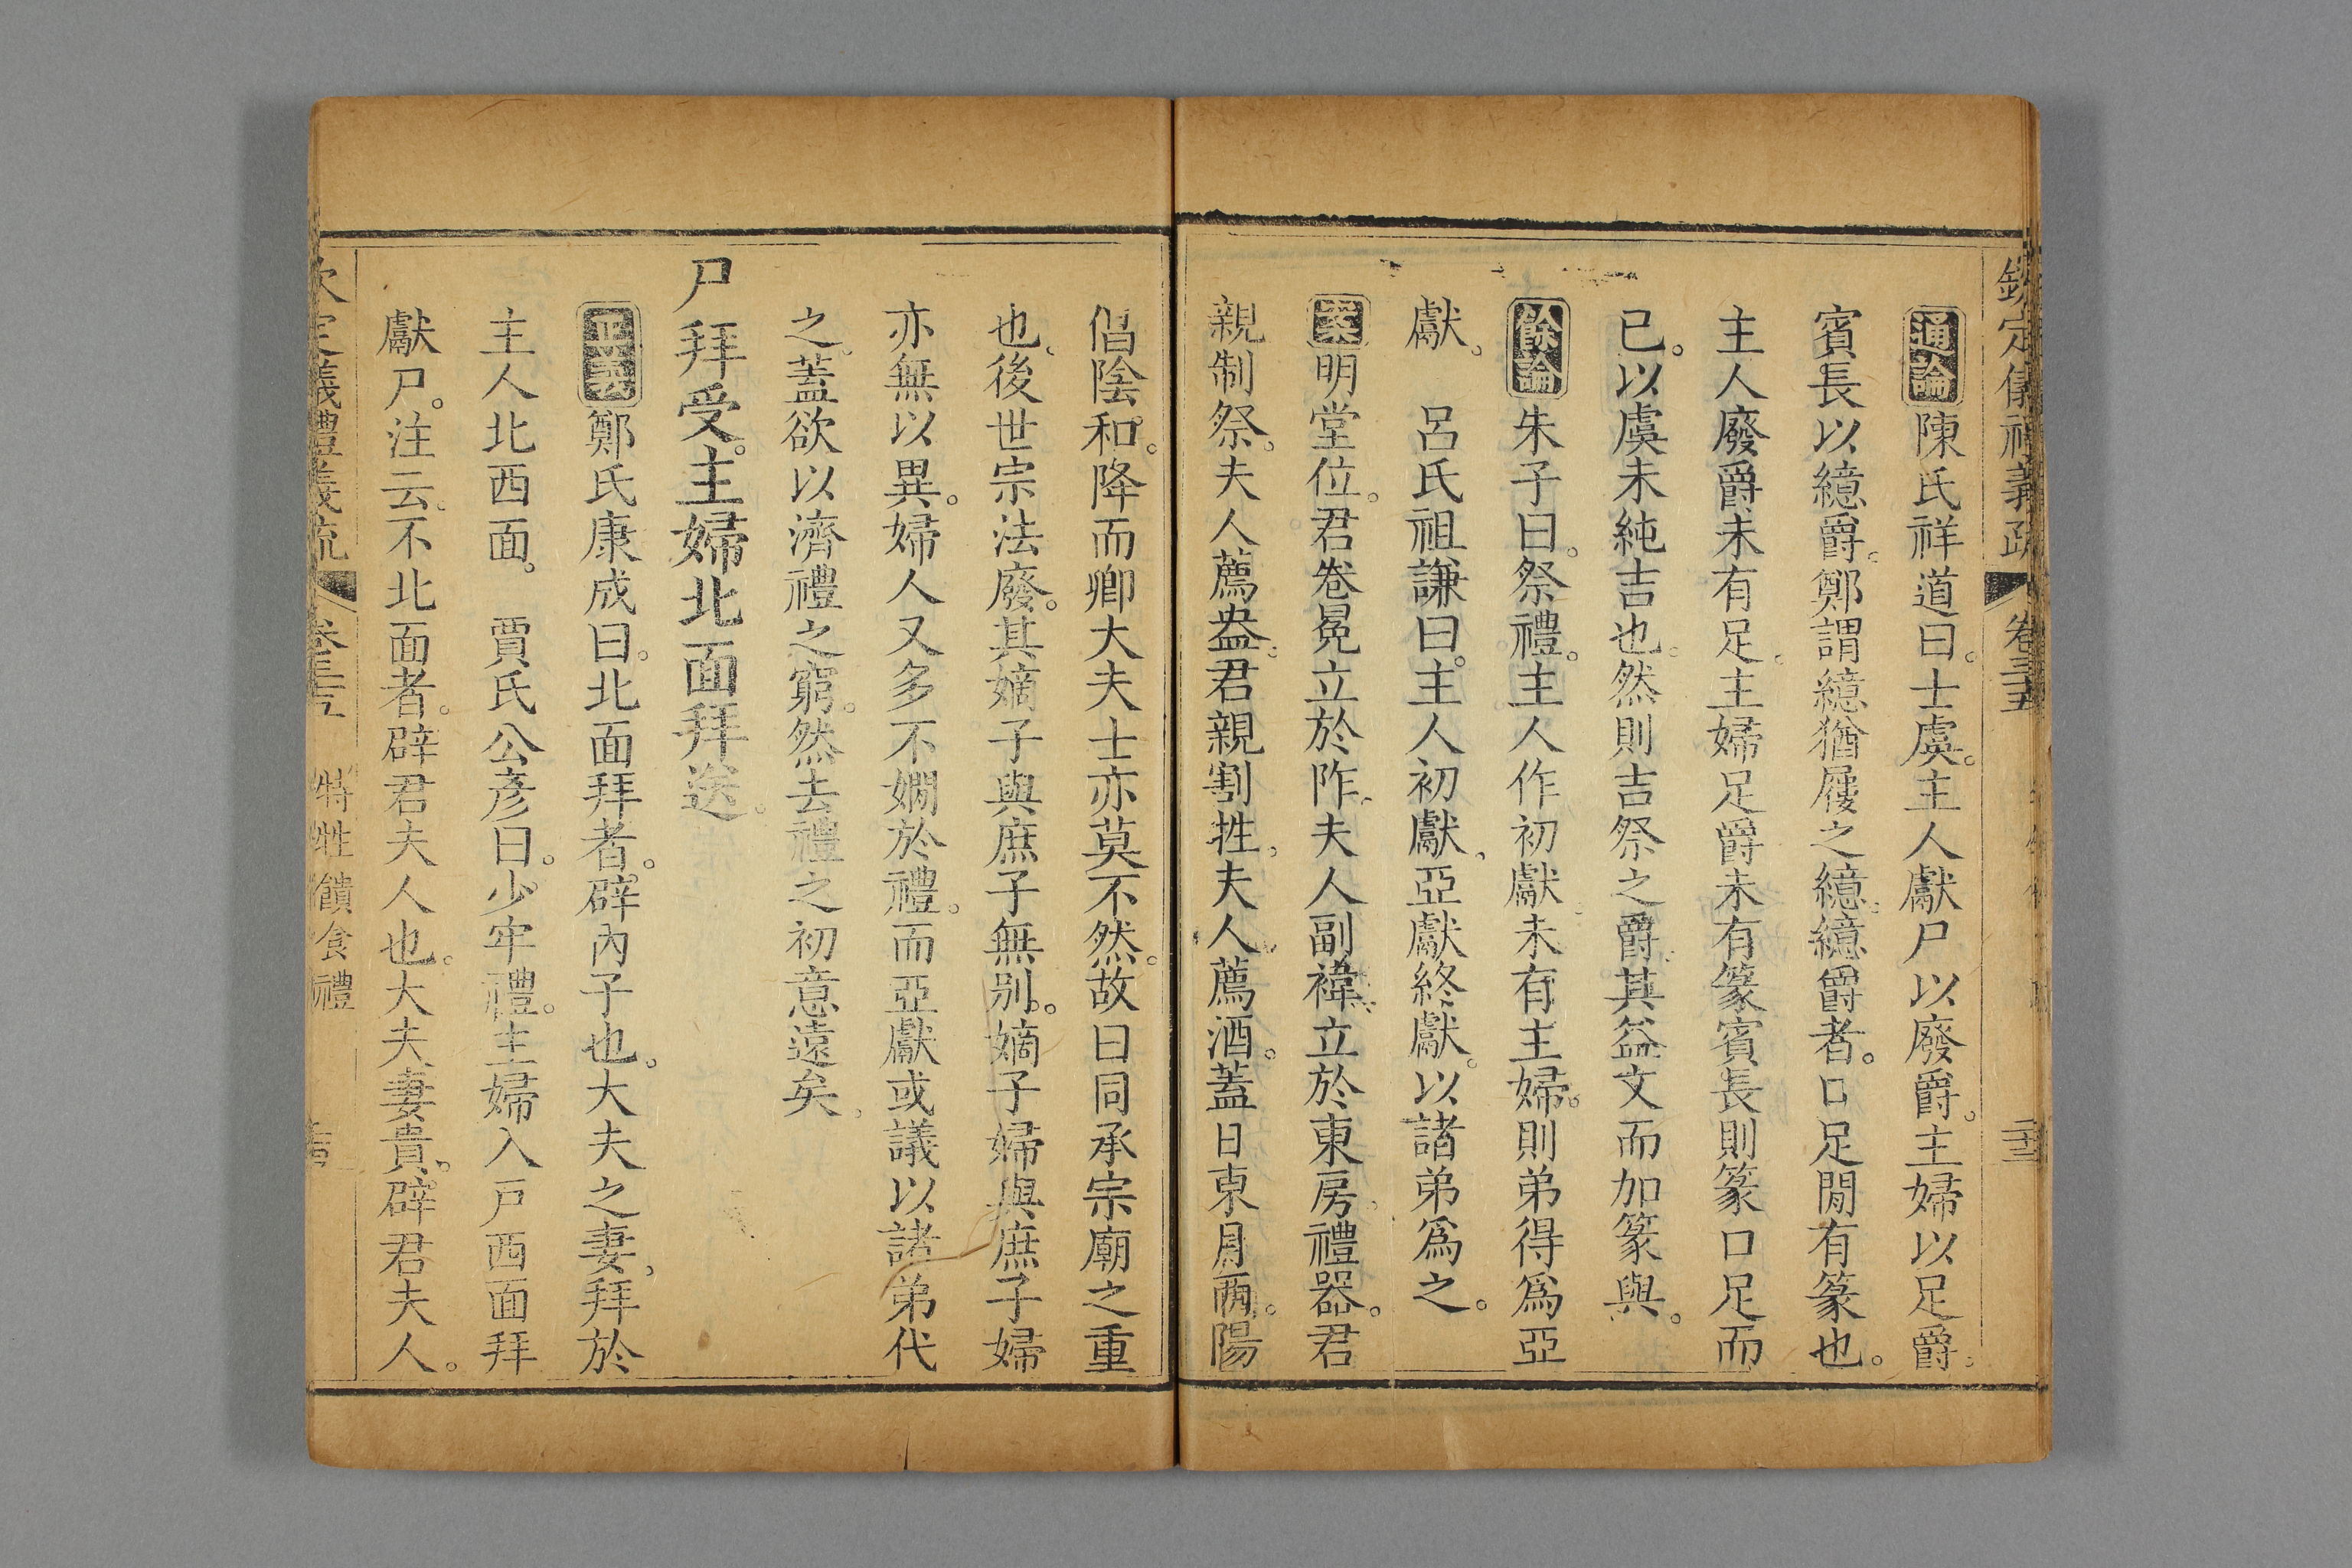 欽定儀禮義疏 卷三十五
通論陳氏祥道曰。士虞。主人獻尸以廢爵。主婦以足爵。
賓長以繶爵。鄭謂繶猶屨之繶。繶爵者。口足閒有篆也。
主人廢爵。未有足。主婦足爵。未有篆。賓長則篆口足而
已。以虞未純吉也。然則吉祭之爵。其益文而加篆與。
餘論朱子曰。祭禮。主人作初獻。未有主婦。則弟得爲亞
獻。 呂氏祖謙曰。主人初獻。亞獻終獻。以諸弟爲之。
案明堂位。君卷冕立於阼。夫人副褘立於東房。禮器。君
親制祭。夫人薦盎。君親割牲。夫人薦酒。蓋日東月西。陽
倡陰和。降而卿大夫士亦莫不然。故曰同承宗廟之重
也。後世宗法廢。其嫡子與庶子無别。嫡子婦與庶子婦
亦無以異。婦人又多不嫺於禮。而亞獻或議以諸弟代
之。蓋欲以濟禮之窮。然去禮之初意遠矣。
尸拜受。主婦北面拜送。
正義鄭氏康成曰。北面拜者。辟內子也。大夫之妻。拜於
主人北西面。 賈氏公彥曰。少牢禮。主婦入戶西面拜
獻尸。注云。不北面者。辟君夫人也。大夫妻貴。辟君夫人。
欽定儀禮義疏 卷三十五 特牲饋食禮